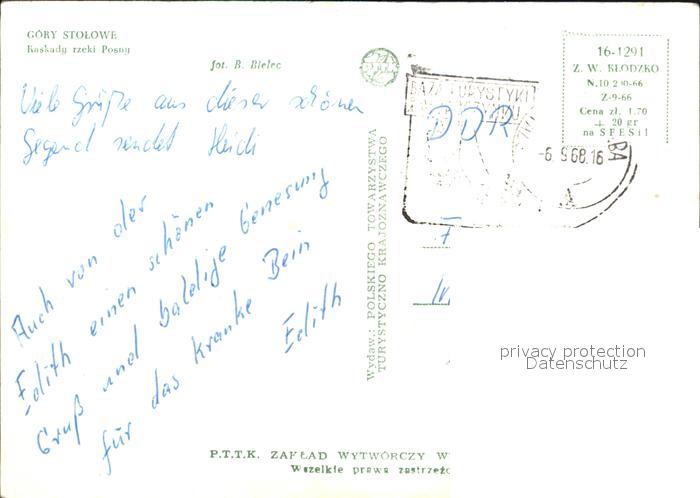 GÓRY STOŁOWE
Kaskady rzeki Posny
fot. B. Bielec
Viele Grüße aus dieser schönen
Gegend sendet Heidi
Auch von der
Edith einen schönen
Gruß und baldige Genesung
für das kranke Bein
Edith
P.T.T.K. ZAKŁAD WYTWÓRCZY W
Wszelkie prawa zastrzeżo
Wydaw.: POLSKIEGO TOWARZYSTWA
TURYSTYCZNO KRAJOZNAWCZEGO
16-1291
Z. W. KŁODZKO
Z-9-66
Cena zł. 1.70
+ 20 gr
na SFBSiI
TURYSTYKI
DDR
-6.9.68.16
BA
F
privacy protection
Datenschutz